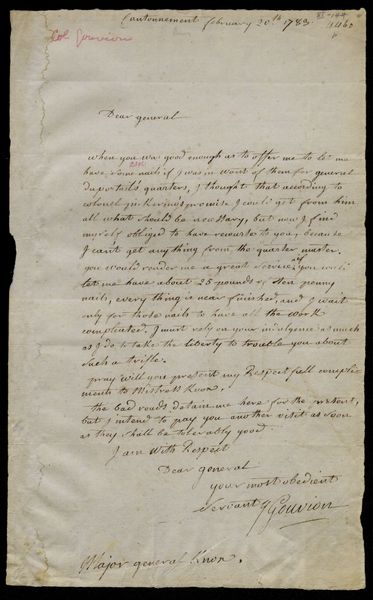 Cantonnement february 20th 1783.
Col Gouvion
Dear general
when you was good enough as to offer me to let me
have some nails if I was in want of them for general
duportail's quarters, I thought that according to
colonel pickering's promise I could get from him
all what should be necessary, but now I find
my self obliged to have recourse to you, because
I can't get any thing from the quarter master.
you would render me a great service if you will
let me have about 25 pounds of ten penny
nails, every thing is near finished, and I wait
only for those nails to have all the work
complicated, I must rely on your indulgence as much
as I do to take the liberty to trouble you about
such a trifle.
pray will you present my Respect full compli-
ments to Mistress Knox.
the bad roads detain me here for the present,
but I intend to pay you another visit as soon
as they shall be tolerably good.
I am with Respect
Dear general
your most obedient
Servant Gouvion
Major general Knox.